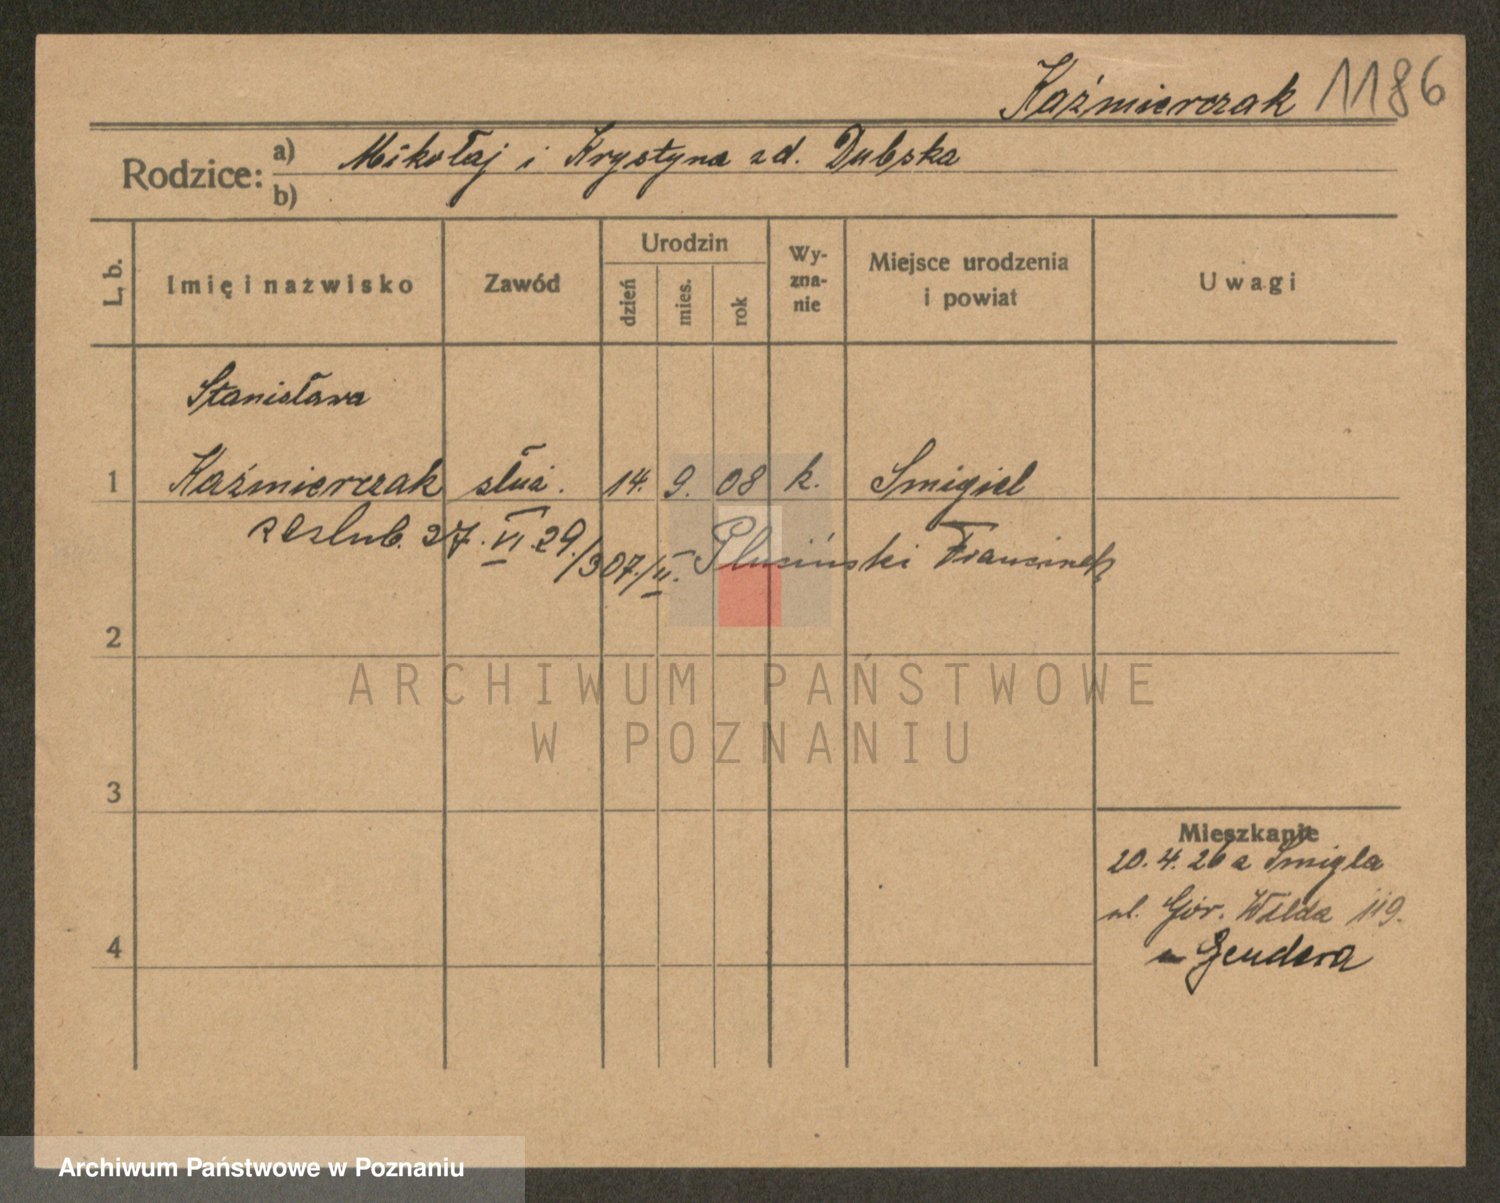 Kaźmierczak 1186
Rodzice: a) Mikołaj i Krystyna zd. Dubska
b)
L. b.
Imię i nazwisko
Zawód
Urodzin
dzień
mies.
rok
Wy-
zna-
nie
Miejsce urodzenia
i powiat
Uwagi
Stanisława
1 Kaźmierczak służ. 14. 9. 08 k. Smigiel
zaślub. 27. VI 29./307./II. Plusiński Franciszek
2
3
4
Mieszkanie
20. 4. 26 z Smigla
ul. Gór. Wilda 119.
u Gendera
ARCHIWUM PAŃSTWOWE
W POZNANIU
Archiwum Państwowe w Poznaniu